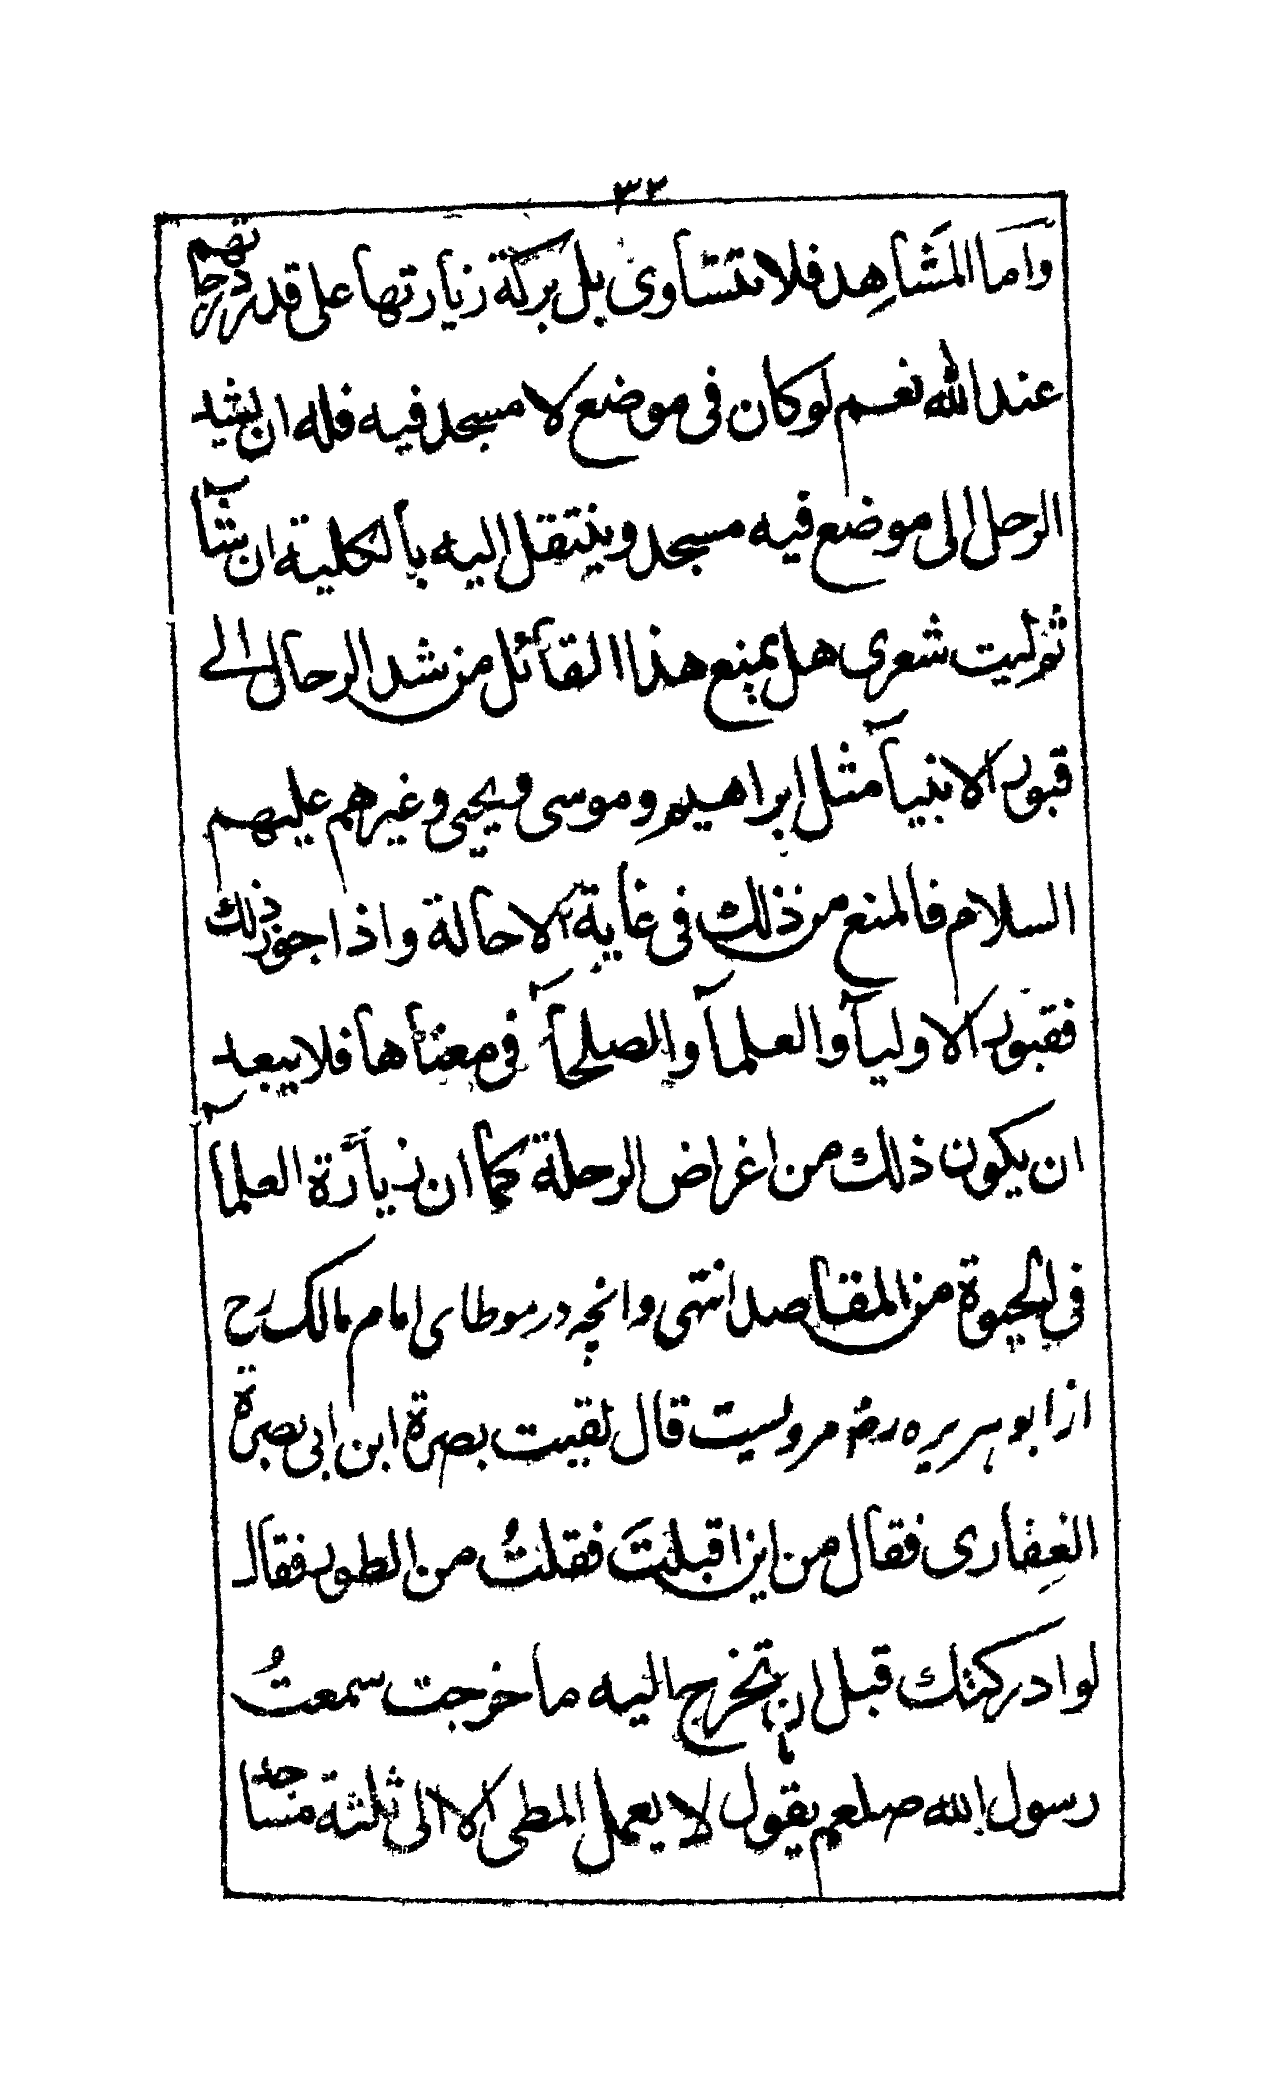 ٣٢
وَاما المَشَاهِد فلا تتسَاوى بل بركة زيارتها على قدر درجاتهم
عند الله نعم لو كان فى موضع لا مسجد فيه فله ان يشد
الرحل الى موضع فيه مسجد وينتقل اليه بالكلية ان شآ
ثم ليت شعرى هل يمنع هذا القائل من شد الرحال الى
قبور الانبيآ مثل ابراهيم وموسى ويحيى وغيرهم عليهم
السلام فالمنع من ذلك فى غاية الاحالة واذا جوز ذلك
فقبور الاوليآ والعلمآ والصلحآ فى معناها فلا يبعد
ان يكون ذلك من اغراض الرحلة كما ان زيارة العلمآ
فى الحيوة من المقاصد انتهى وانچه در موطاى امام مالك رح
از ابو هريره رض مرويست قال لقيت بصرة ابن ابى بصرة
الغِفارى فقال من اين اقبلتَ فقلتُ من الطور فقال
لو ادركتك قبل ان تخرج اليه ما خرجت سمعتُ
رسول الله صلعم يقول لا يعمل المطى الا الى ثلثة مساجد